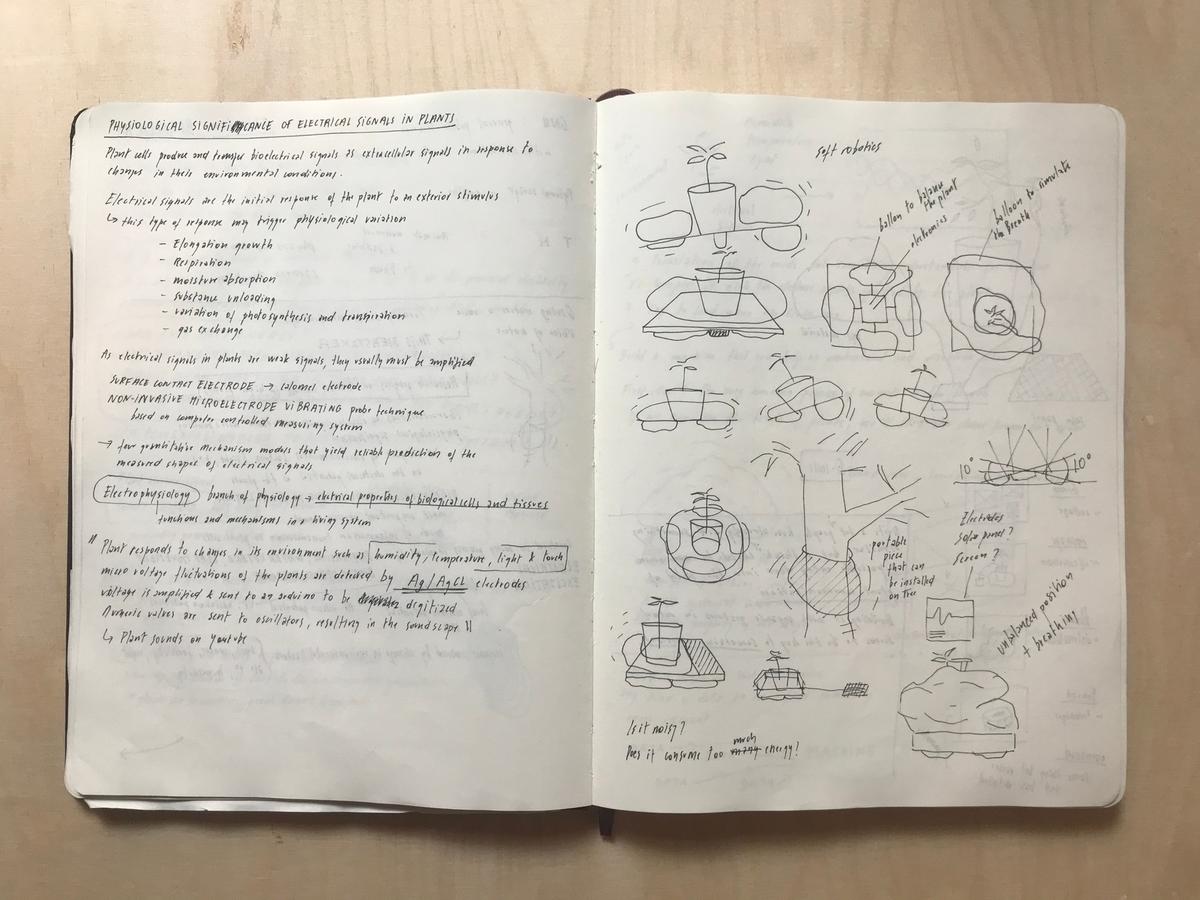 PHYSIOLOGICAL SIGNIFICANCE OF ELECTRICAL SIGNALS IN PLANTS
Plant cells produce and transfer bioelectrical signals as extracellular signals in response to
changes in their environmental conditions.
Electrical signals are the initial response of the plant to an exterior stimulus
↳ this type of response may trigger physiological variation
- Elongation growth
- Respiration
- moisture absorption
- substance unloading
- variation of photosynthesis and transpiration
- gas exchange
As electrical signals in plants are weak signals, they usually must be amplified
SURFACE CONTACT ELECTRODE → calomel electrode
NON-INVASIVE MICROELECTRODE VIBRATING probe technique
based on computer controlled measuring system
→ few quantitative mechanism models that yield reliable prediction of the
measured shapes of electrical signals
Electrophysiology branch of physiology → electrical properties of biological cells and tissues
functions and mechanisms in a living system
" Plant responds to changes in its environment such as humidity, temperature, light & touch
micro voltage fluctuations of the plants are detected by Ag/AgCl electrodes
voltage is amplified & sent to an arduino to be digitized
Numeric values are sent to oscillators, resulting in the soundscape "
↳ Plant sounds on youtube
soft robotics
ballon to balance
the plant
electronics
balloon to simulate
the Breath
10°
10°
portable
piece
that can
be installed
on Tree
Electrodes
Solar panel?
Screen?
unbalanced position
+ breathing
Is it noisy?
Does it consume too many much energy?